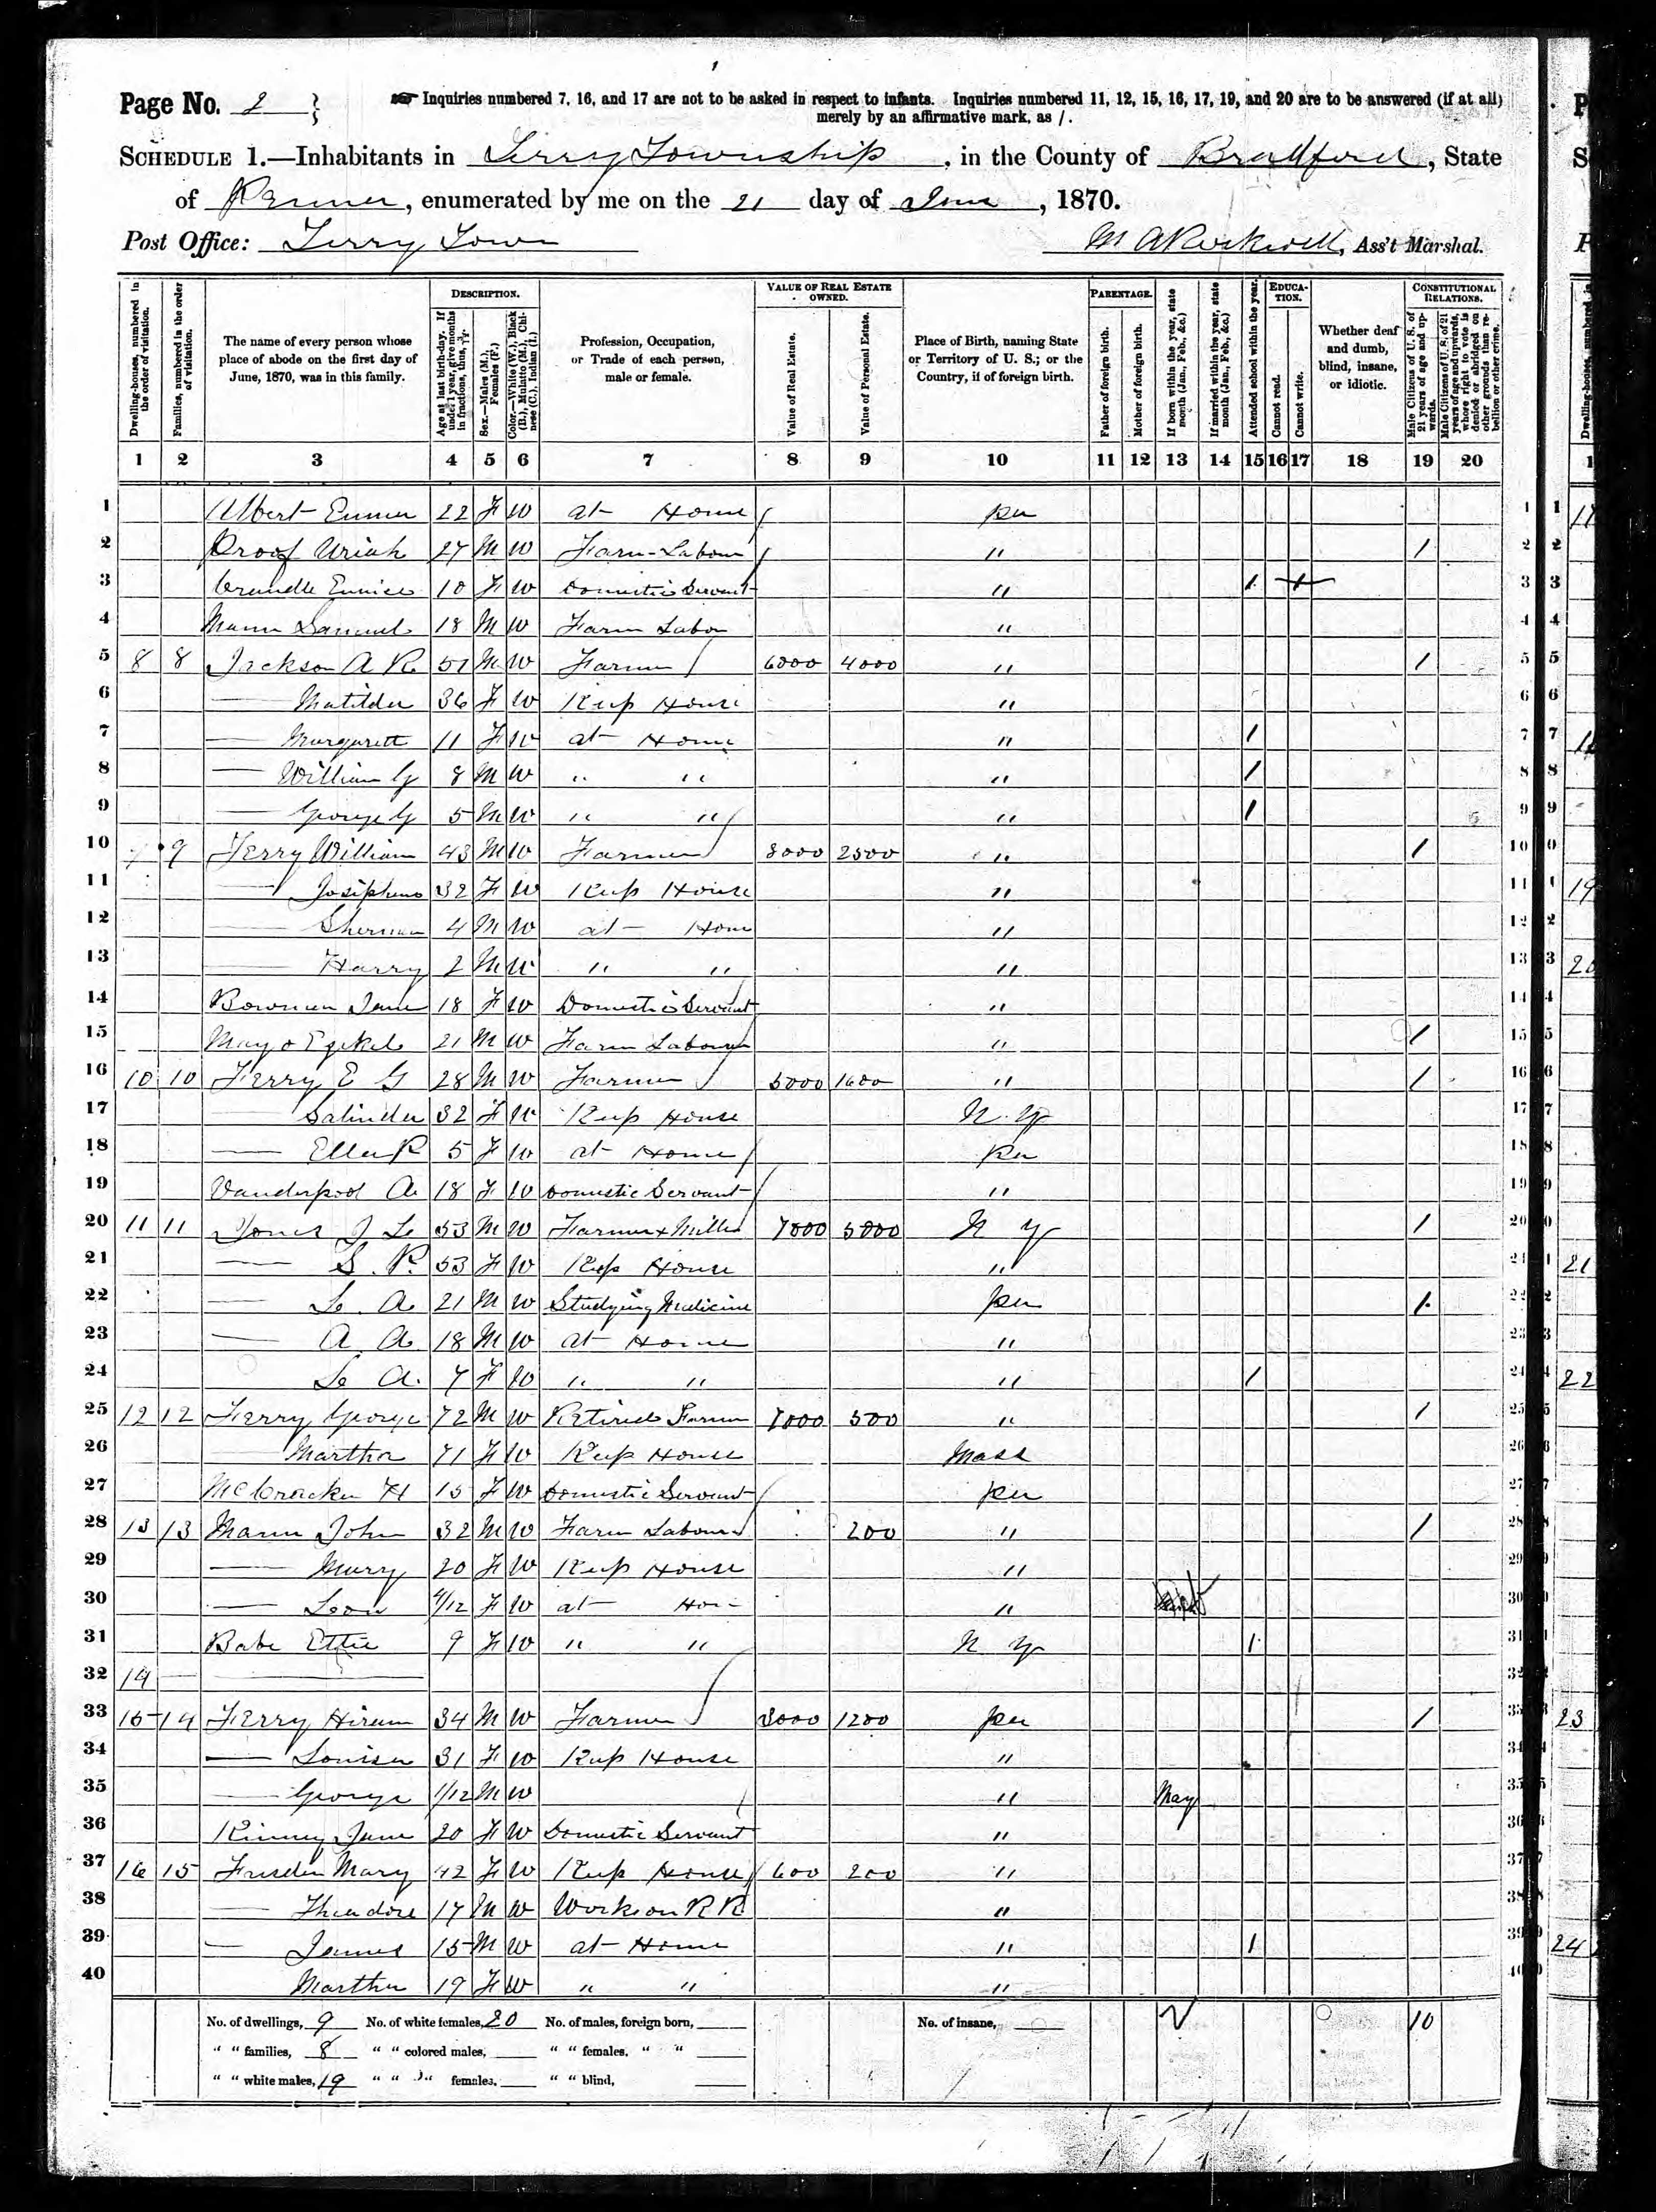 Page No. 2
Inquiries numbered 7, 16, and 17 are not to be asked in respect to infants. Inquiries numbered 11, 12, 15, 16, 17, 19, and 20 are to be answered (if at all)
merely by an affirmative mark, as /.
SCHEDULE 1.—Inhabitants in Terry Township, in the County of Bradford, State
of Penna, enumerated by me on the 21 day of June, 1870.
Post Office: Terry Town M A Rockwell, Ass't Marshal.
Dwelling-houses, numbered in the order of visitation.
Families, numbered in the order of visitation.
The name of every person whose place of abode on the first day of June, 1870, was in this family.
DESCRIPTION.
Age at last birth-day. If under 1 year, give months in fractions, thus, 3/12.
Sex.—Males (M.), Females (F.)
Color.—White (W.), Black (B.), Mulatto (M.), Chinese (C.), Indian (I.)
Profession, Occupation, or Trade of each person, male or female.
VALUE OF REAL ESTATE OWNED.
Value of Real Estate.
Value of Personal Estate.
Place of Birth, naming State or Territory of U. S.; or the Country, if of foreign birth.
PARENTAGE.
Father of foreign birth.
Mother of foreign birth.
If born within the year, state month (Jan., Feb., &c.)
If married within the year, state month (Jan., Feb., &c.)
Attended school within the year.
EDUCATION.
Cannot read.
Cannot write.
Whether deaf and dumb, blind, insane, or idiotic.
CONSTITUTIONAL RELATIONS.
Male Citizens of U. S. of 21 years of age and upwards.
Male Citizens of U. S. of 21 years of age and upwards, whose right to vote is denied or abridged on other grounds than rebellion or other crime.
1 2 3 4 5 6 7 8 9 10 11 12 13 14 15 16 17 18 19 20
1 Albert Emma 22 F W at Home Pa 1
2 Proof Uriah 27 M W Farm-Labour " / 2
3 Crandle Eunice 10 F W Domestic Servant " / 3
4 Mann Samuel 18 M W Farm Labor " 4
5 8 8 Jackson A R 51 M W Farmer 6000 4000 " / 5
6 — Matilda 36 F W Keep House " 6
7 — Margarett 11 F W at Home " / 7
8 — William G 8 M W " " " / 8
9 — George G 5 M W " " " / 9
10 9 Terry William 43 M W Farmer 8000 2500 " / 10
11 — Josephene 32 F W Keep House " 11
12 — Sherman 4 M W at Home " 12
13 — Harry 2 M W " " " 13
14 Bowman Jane 18 F W Domestic Servant " 14
15 Mayo Ezekel 21 M W Farm Labourer " / 15
16 10 10 Terry E G 28 M W Farmer 5000 1600 " / 16
17 — Salinda 32 F W Keep House N. Y 17
18 — Ella R 5 F W at Home Pa 18
19 Vanderpool A 18 F W Domestic Servant " 19
20 11 11 Jones J L 53 M W Farmer & Miller 7000 5000 N Y / 20
21 — S. R. 53 F W Keep House " 21
22 — L. A 21 M W Studying Medicine Pa / 22
23 — A A 18 M W at Home " 23
24 — L A. 7 F W " " " / 24
25 12 12 Terry George 72 M W Retired Farmer 7000 500 " / 25
26 — Martha 71 F W Keep House Mass 26
27 McCracken H 15 F W Domestic Servant Pa 27
28 13 13 Mann John 32 M W Farm Labourer 200 " / 28
29 — Mary 20 F W Keep House " 29
30 — Leon 4/12 F W at Home " 30
31 Babe Ettie 9 F W " " N Y / 31
32 14 — 32
33 15 14 Terry Hiram 34 M W Farmer 3000 1200 Pa / 33
34 — Louisa 31 F W Keep House " 34
35 — George 1/12 M W " May 35
36 Kinney Jane 20 F W Domestic Servant " 36
37 16 15 Mary 42 F W Keep House 600 200 " 37
38 — Theadore 17 M W Works on R R " 38
39 — James 15 M W at Home " / 39
40 Martha 19 F W " " " 40
No. of dwellings, 9 No. of white females, 20 No. of males, foreign born, No. of insane, 10
" " families, 8 " " colored males, " " females, " "
" " white males, 19 " " " females, " " blind,